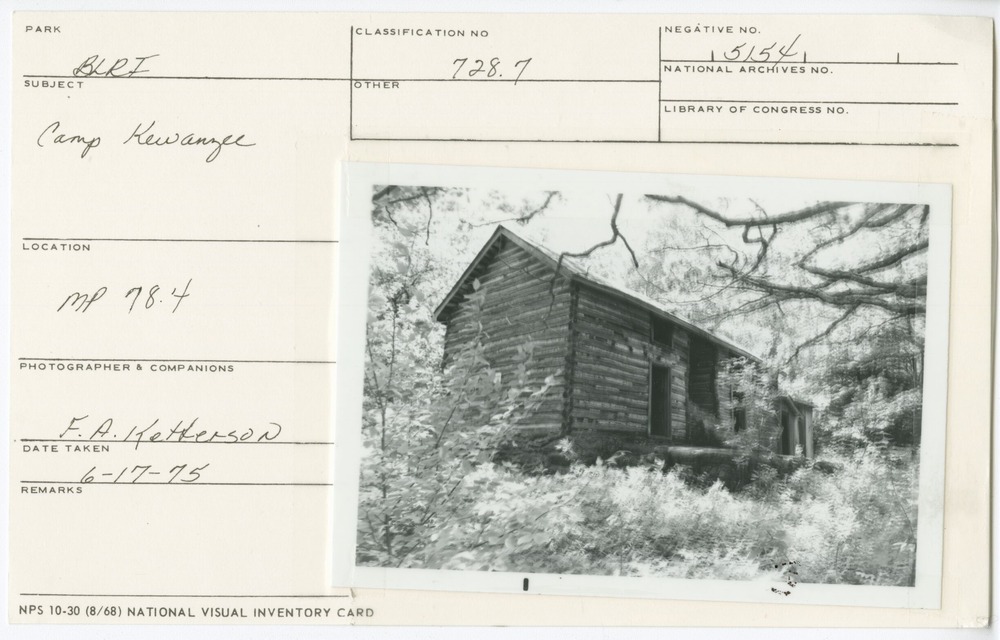 PARK
BLRI
CLASSIFICATION NO
728.7
NEGATIVE NO.
5154
SUBJECT
OTHER
NATIONAL ARCHIVES NO.
LIBRARY OF CONGRESS NO.
Camp Kewanzee
LOCATION
MP 78.4
PHOTOGRAPHER & COMPANIONS
F. A. Ketterson
DATE TAKEN
6-17-75
REMARKS
NPS 10-30 (8/68) NATIONAL VISUAL INVENTORY CARD